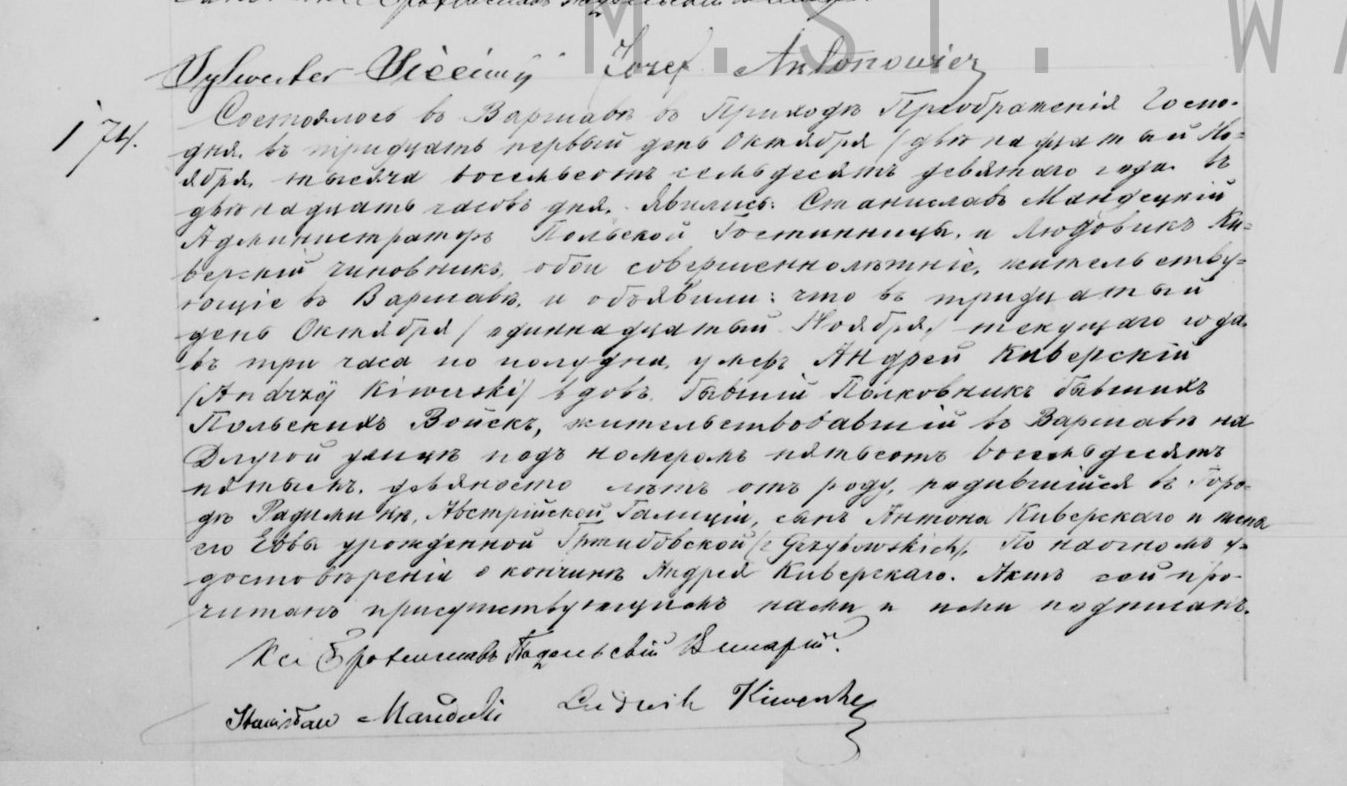 M. ST. WA
Sylwester Józef Antonowicz
174.
Состоялось въ Варшавѣ въ Приходѣ Преображенія Госпо-
дня, въ тридцать первый день Октября /двѣнадцатый Но-
ября, тысяча восемьсотъ семьдесятъ девятаго года. въ
двѣнадцать часовъ дня. Явились: Станиславъ Мандецкій
Администраторъ Польской Гостинницы, и Людовикъ Ки-
верскій чиновникъ, обои совершеннолѣтніе, жительству-
ющіе въ Варшавѣ, и объявили: что въ тридцатый
день Октября /одиннадцатый Ноября/ текущаго года,
въ три часа по полудни, умеръ Андрей Киверскій
/Andrzÿ Kiwerski/ вдовъ. бывшій Полковникъ бывшихъ
Польскихъ Войскъ, жительствовавшій въ Варшавѣ на
Длугой улицѣ подъ номеромъ пятьсотъ восемьдесятъ
пятымъ. девяносто лѣтъ отъ роду, родившійся въ Горо-
дѣ Австрійской Галиціи, сынъ Антона Киверскаго и жены
его Еввы урожденной Гржибовской /z Grzybowskich/. По наочномъ у-
достовѣреніи о кончинѣ Андрея Киверскаго. Актъ сей про-
читанъ присутствующимъ нами и ими подписанъ.
Кс: Викарій.
Stanisław Mandecki Ludwik Kiwerski